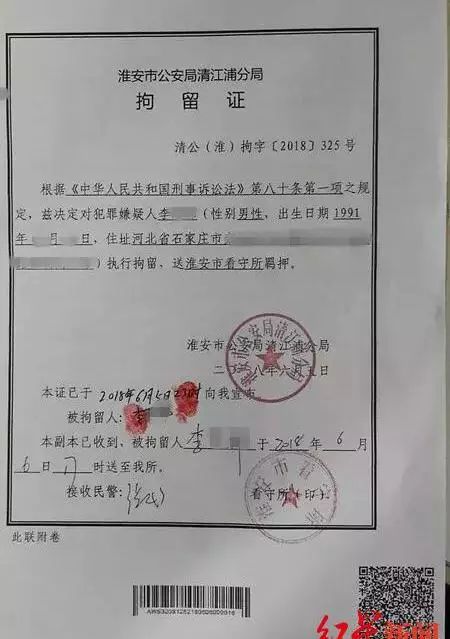 淮安市公安局清江浦分局
拘留证
清公（淮）拘字〔2018〕325号
根据《中华人民共和国刑事诉讼法》第八十条第一项之规
定，兹决定对犯罪嫌疑人李（性别男性，出生日期1991
年 日，住址河北省石家庄市
）执行拘留，送淮安市看守所羁押。
淮安市公安局清江浦分局
二 八年六月五日
淮安市公安局清江浦分局
本证已于2018年6月5日23时向我宣布。
被拘留人：李
本副本已收到，被拘留人李 于2018年6月
6日 时送至我所。
接收民警：
看守所（印）
此联附卷
红星新闻